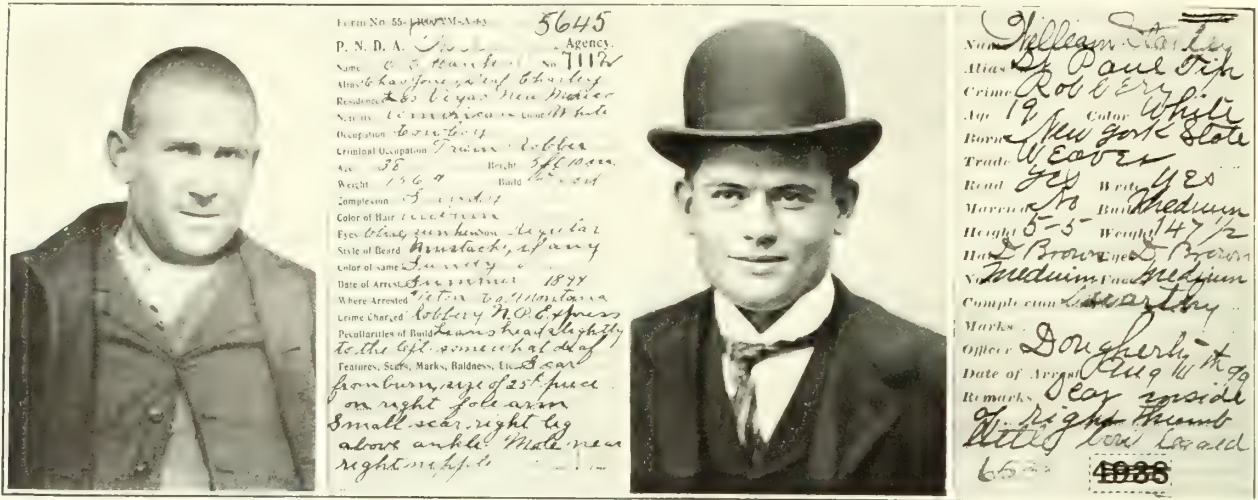 5645
Form No. 55-
P. N. D. A. Agency.
Name O. C. Hanks No. 7112
Alias Chas Jones, Deaf Charley
Residence Las Vegas New Mexico
Nativity American Color White
Occupation Cowboy
Criminal Occupation Train Robber
Age 38 Height 5 ft 10 in.
Weight 156 Build Good
Complexion Sandy
Color of Hair Auburn
Eyes Blue Nose Regular
Style of Beard Mustache, if any
Color of same Sandy
Date of Arrest Summer 1894
Where Arrested Teton Co. Montana
Crime Charged Robbery N.P. Express
Peculiarities of Build Leans head slightly
to the left. somewhat deaf
Features, Scars, Marks, Baldness, Etc. Scar
from burn, size of 25¢ piece
on right forearm
Small scar, right leg
above ankle. Mole near
right nipple
Name William
Alias St Paul Tip
Crime Robbery
Age 19 Color White
Born New York State
Trade Weaver
Read Yes Write Yes
Married No Build Medium
Height 5-5 Weight 147 1/2
Hair D Brown Eyes D Brown
Nose Medium Face Medium
Complexion Swarthy
Marks
Officer Dougherty
Date of Arrest Aug
Remarks Scar inside
of right thumb
little bow legged
4938